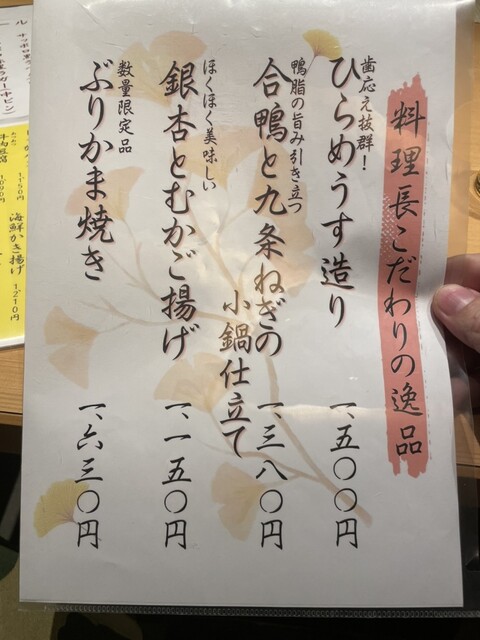 料理長こだわりの逸品
歯応え抜群!
ひらめうす造り
一、五〇〇円
鴨脂の旨み引き立つ
合鴨と九条ねぎの
小鍋仕立て
一、三八〇円
ほくほく美味しい
銀杏とむかご揚げ
一、一五〇円
数量限定品
ぶりかま焼き
一、六三〇円
海鮮かき揚げ
1210円
1150円